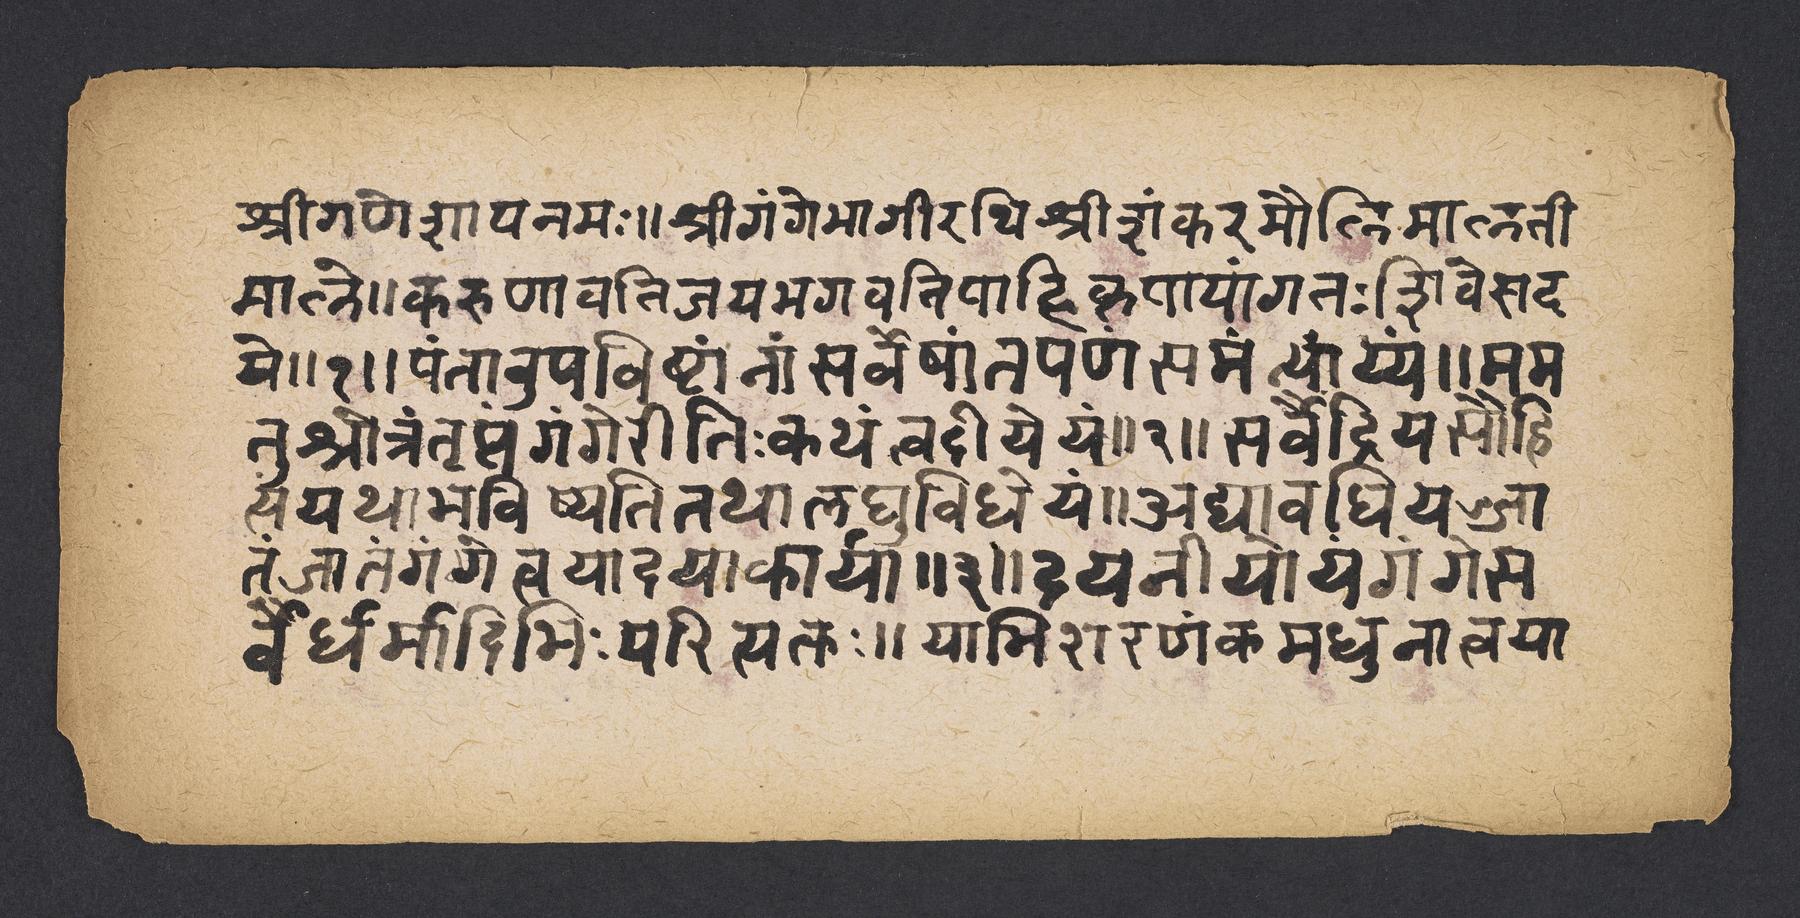 श्रीगणेशायनमः॥श्रीगंगेभागीरथिश्रीशंकरमौलिमालती
माले॥करुणावतिजयभगवतिपाहिकृपायांगतःशिवेसद
ये॥१॥पंतावुपविष्टांनांसर्वेषांतर्पणंसमं त्यांय्यं॥मम
तुश्रोत्रंतृप्तंगंगेरीतिःकथंत्वदीयेयं॥२॥सर्वेंद्रियसौहि
त्यंयथाभविष्यतितथालघुविधेयं॥अद्यावधियज्जा
तंजातंगंगेत्वयादयाकार्या॥३॥दयनीयोयंगंगेस
र्वैर्धर्मादिभिःपरित्यक्तः॥यामिशरणंकमधुनात्वया